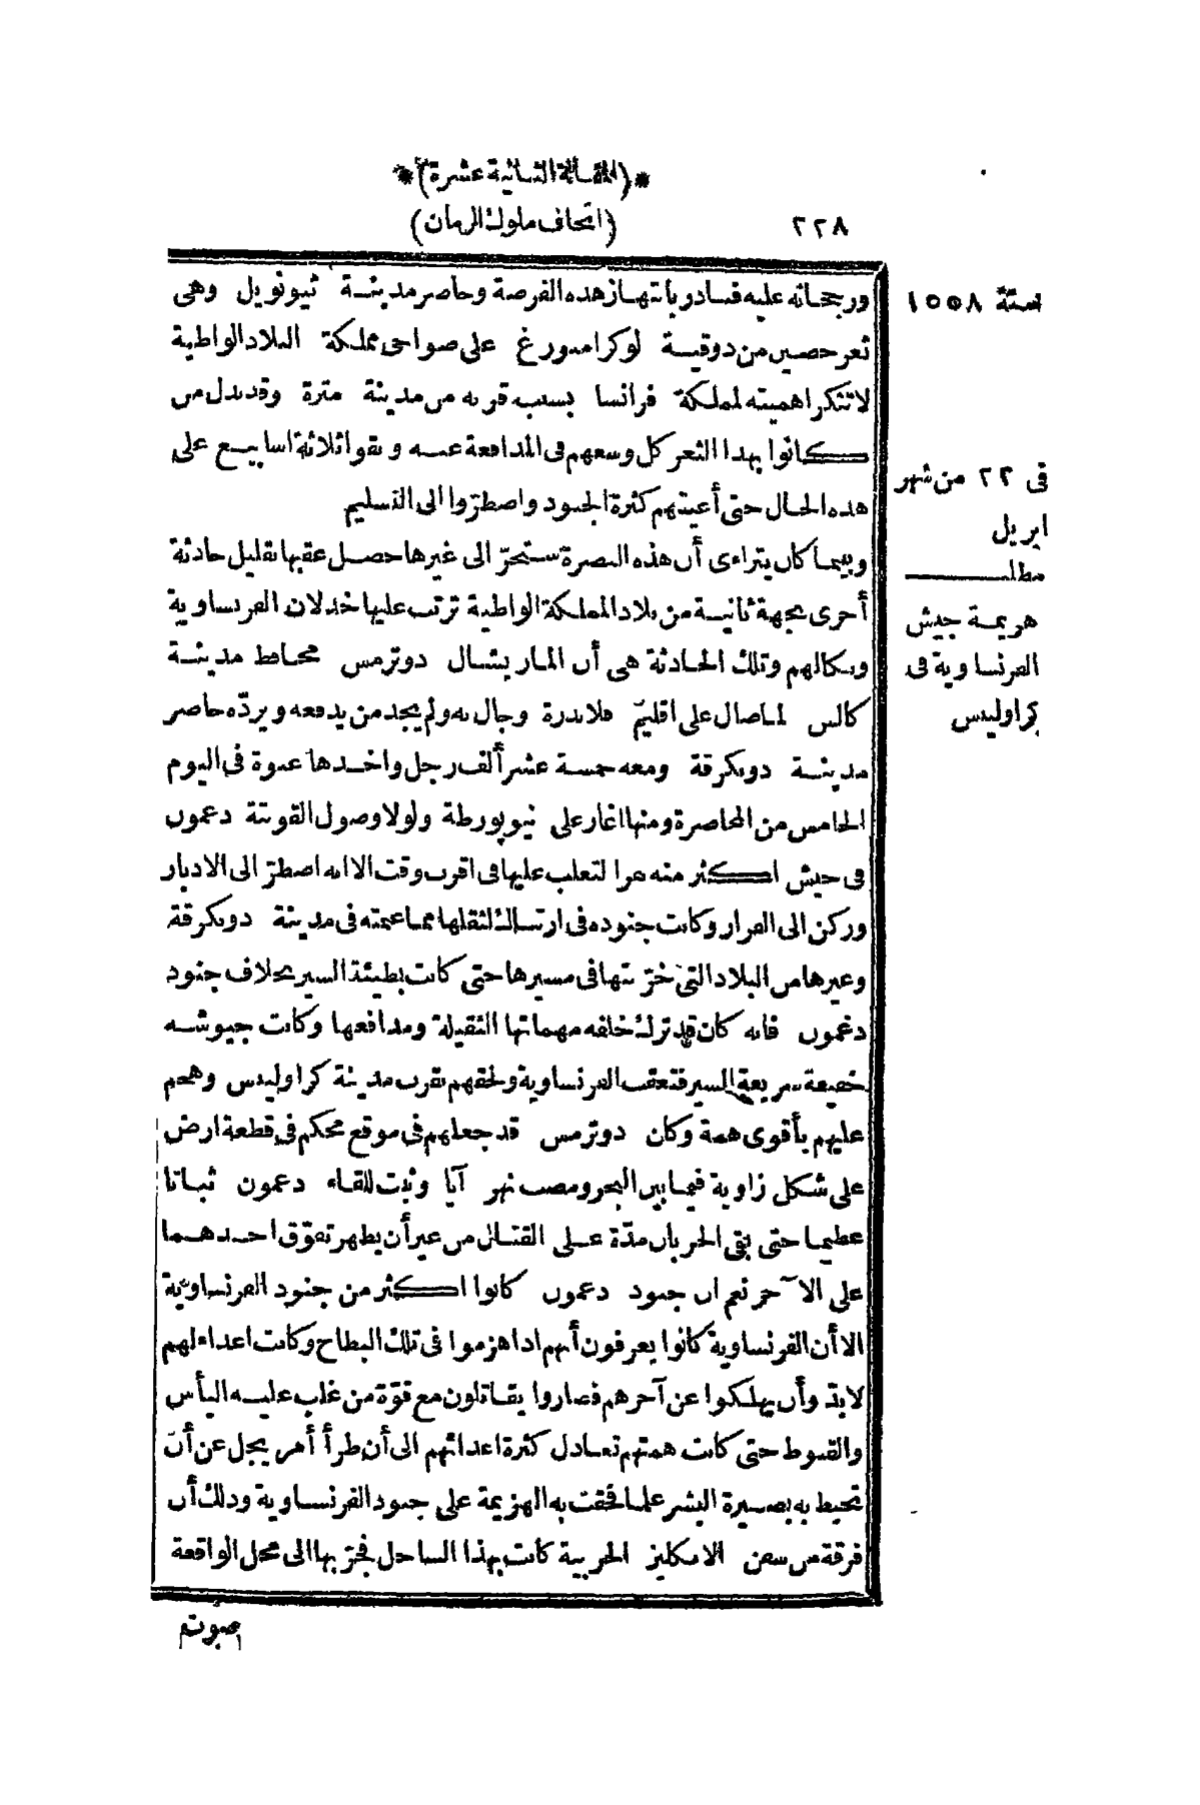 *(المقالة الثانية عشرة)*
٢٢٨
(اتحاف ملوك الزمان)
سنة ١٥٥٨
ورجحانه عليه فبادر بانتهاز هذه الفرصة وحاصر مدينة ثيونويل وهى
ثغر حصين من دوقية لوكزامبورغ على ضواحى مملكة البلاد الواطية
لا تنكر اهميته لمملكة فرانسا بسبب قربه من مدينة متزة وقد بذل من
كانوا بهذا الثغر كل وسعهم فى المدافعة عنه وبقوا ثلاثة اسابيع على
هذه الحال حتى أعيتهم كثرة الجنود واضطرّوا الى التسليم
فى ٢٢ من شهر
ابريل
وبينما كان يتراءى أن هذه النصرة ستجرّ الى غيرها حصل عقبها بقليل حادثة
أخرى بجهة ثانية من بلاد المملكة الواطية ترتب عليها خذلان الفرنساوية
ونكالهم وتلك الحادثة هى أن الماريشال دوترمس محافظ مدينة
كالس لما صال على اقليم فلاندرة وجال به ولم يجد من يدفعه ويردّه حاصر
مطلب
هزيمة جيش
الفرنساوية فى
كراوليس
مدينة دونكرقة ومعه خمسة عشر ألف رجل واخذها عنوة فى اليوم
الخامس من المحاصرة ومنها اغار على نيوپورطة ولولا وصول القونتة دغمون
فى جيش اكثر منه عددا لتغلب عليها فى اقرب وقت الا انه اضطرّ الى الادبار
وركن الى الفرار وكانت جنوده فى ارتباك لثقلها مما غنمته فى مدينة دونكرقة
وغيرها من البلاد التى خرّبتها فى مسيرها حتى كانت بطيئة السير بخلاف جنود
دغمون فانه كان قد ترك خلفه مهماتها الثقيلة ومدافعها وكانت جيوشه
خفيفة سريعة السير فتعقب الفرنساوية ولحقهم بقرب مدينة كراوليس وهجم
عليهم بأقوى همة وكان دوترمس قد جعلهم فى موقع محكم فى قطعة ارض
على شكل زاوية فيما بين البحر ومصب نهر آيا وثبت للقاء دغمون ثباتا
عظيما حتى بقى الحربان مدّة على القتال من غير أن يظهر تفوّق احدهما
على الآخر نعم ان جنود دغمون كانوا اكثر من جنود الفرنساوية
الا أن الفرنساوية كانوا يعرفون أنهم اذا هزموا فى تلك البطاح وكانت اعداء لهم
لابدّ وأن يهلكوا عن آخرهم فصاروا يقاتلون مع قوّة من غلب عليه اليأس
والقنوط حتى كانت همتهم تعادل كثرة اعدائهم الى أن طرأ أمر يجل عن أن
تحيط به بصيرة البشر علما فحقت به الهزيمة على جنود الفرنساوية وذلك أن
فرقة من سفن الانكليز الحربية كانت بهذا الساحل فجرّ بها الى محل الواقعة